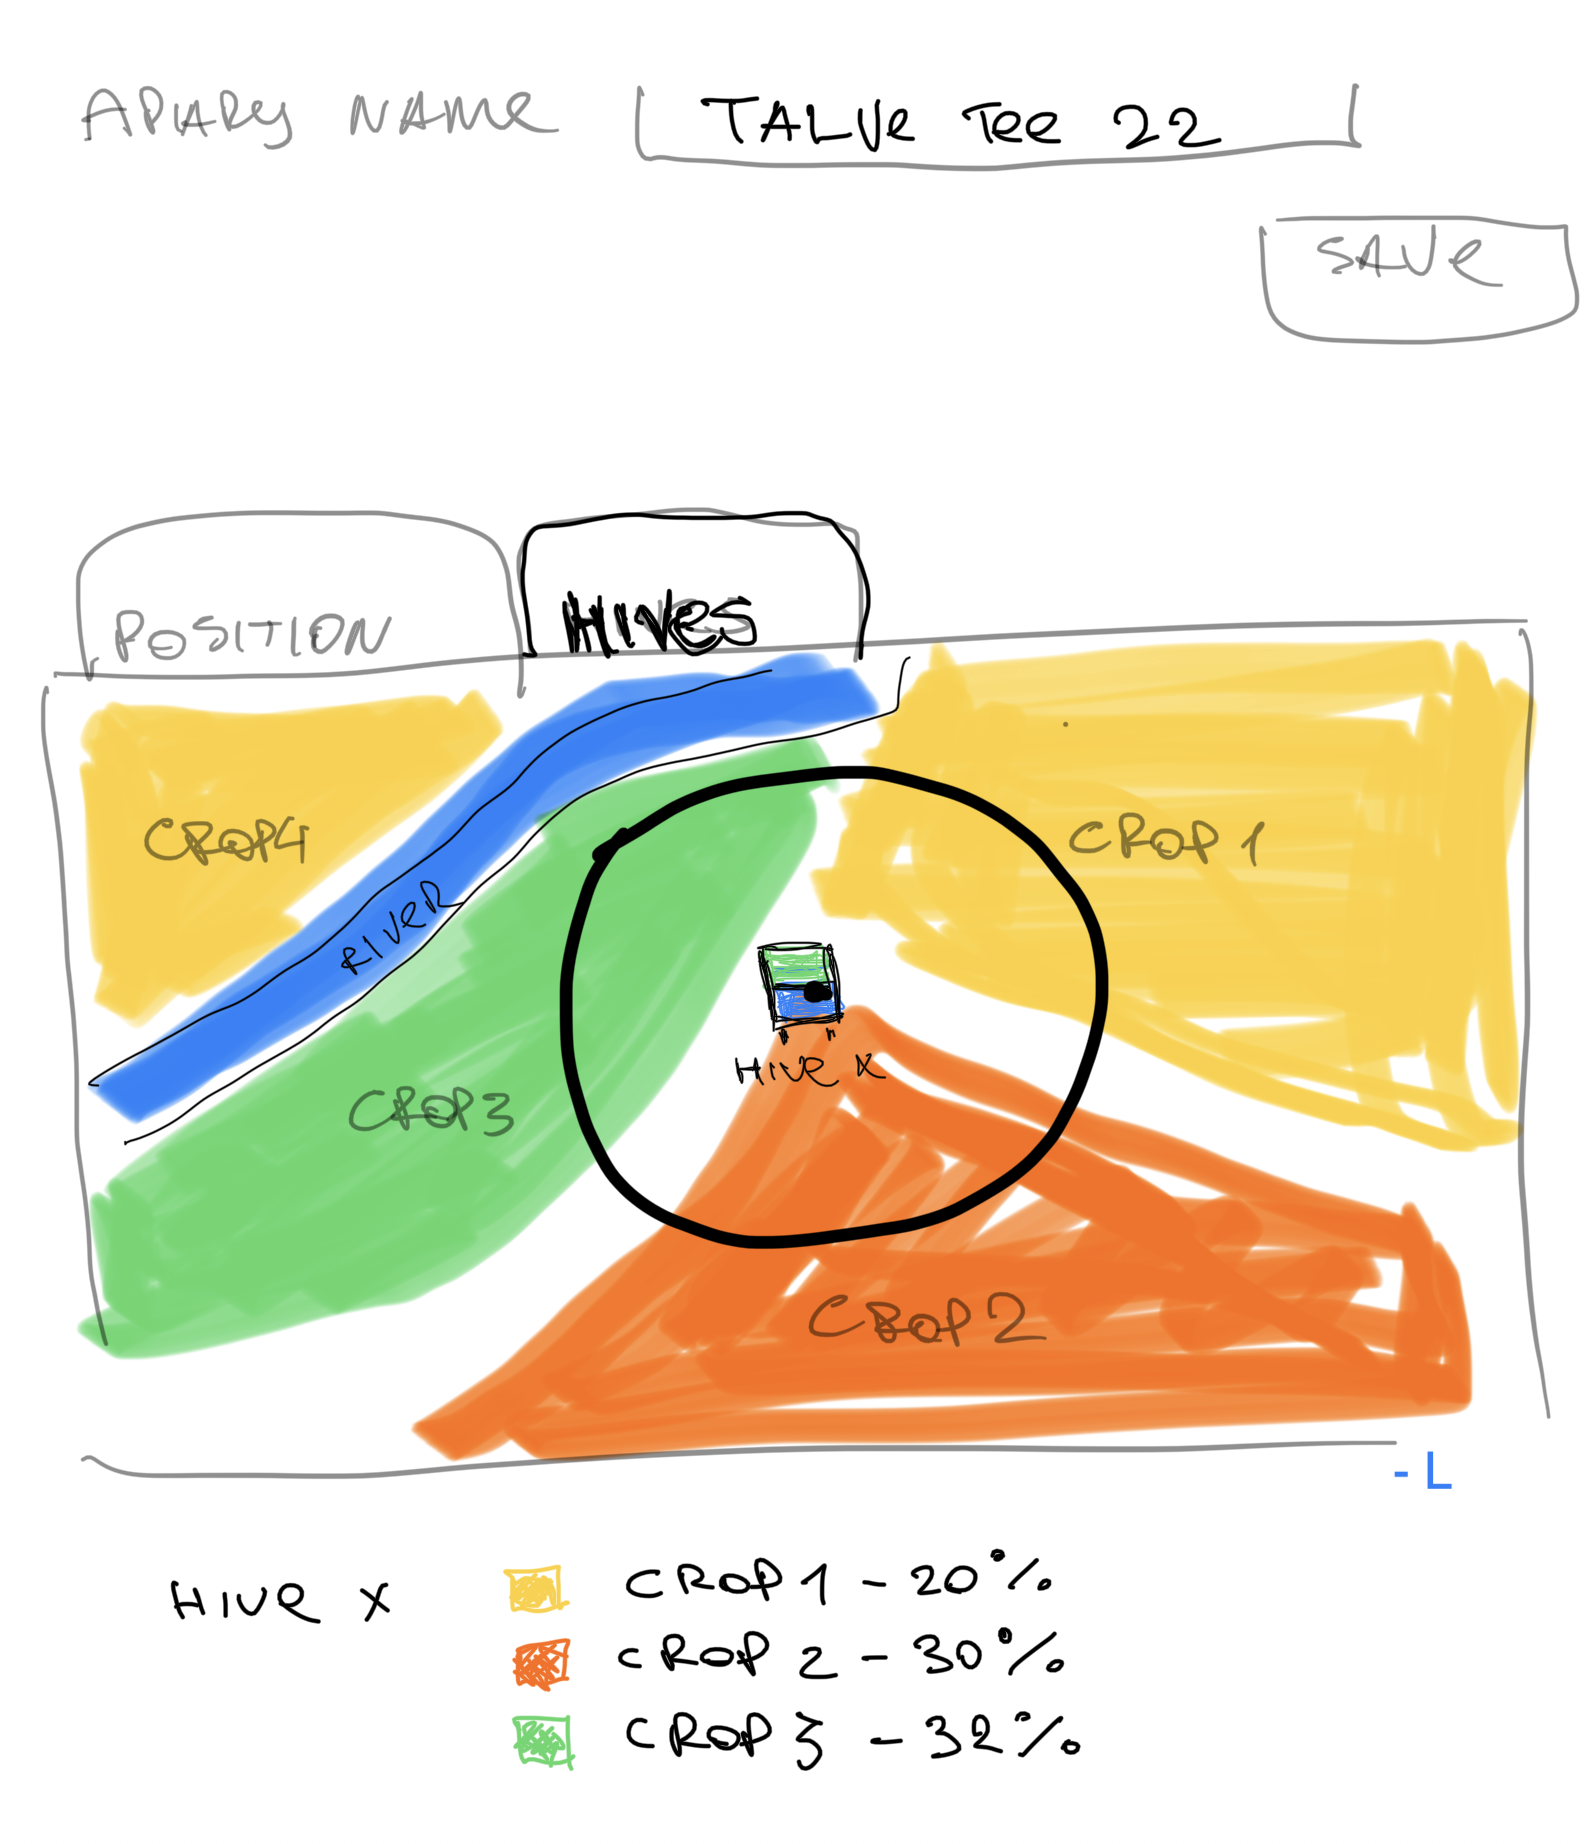 APIARY NAME TALVE TEE 22
SAVE
POSITION HIVES
CROP4 CROP 1
RIVER
HIVE X
CROP3
CROP 2
- L
HIVE X CROP 1 - 20%
CROP 2 - 30%
CROP 3 - 32%